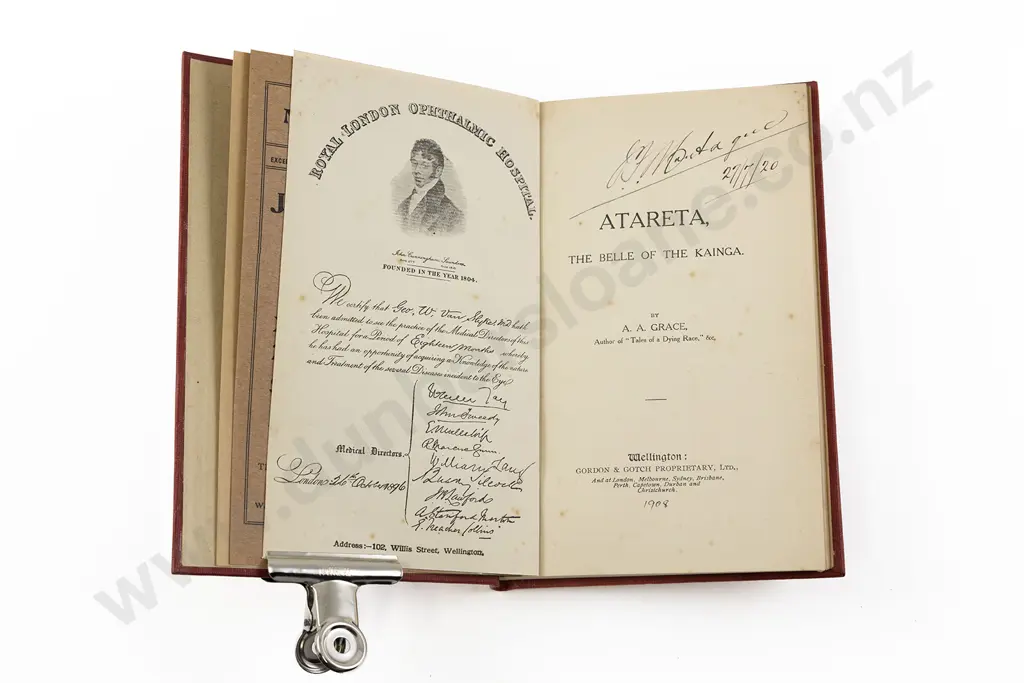 ROYAL LONDON OPHTHALMIC HOSPITAL.
John Cunningham Saunders
FOUNDED IN THE YEAR 1804.
We certify that Geo. W. Van Slyke, M.D. hath
been admitted to see the practice of the Medical Directors of this
Hospital for a Period of Eighteen Months whereby
he has had an opportunity of acquiring a Knowledge of the nature
and Treatment of the several Diseases incident to the Eye
Waren Tay
John Tweedy
R. Marcus Gunn
William Lang
Medical Directors.
JB Lawford
A Stanford Morton
E. Treacher Collins
London 26th October 1896
Address:—102, Willis Street, Wellington.
Montague
27/7/20
ATARETA,
THE BELLE OF THE KAINGA.
BY
A. A. GRACE,
Author of "Tales of a Dying Race," &c.
Wellington:
GORDON & GOTCH PROPRIETARY, LTD.,
And at London, Melbourne, Sydney, Brisbane,
Perth, Capetown, Durban and
Christchurch.
1908
www.dunbarsloane.co.nz